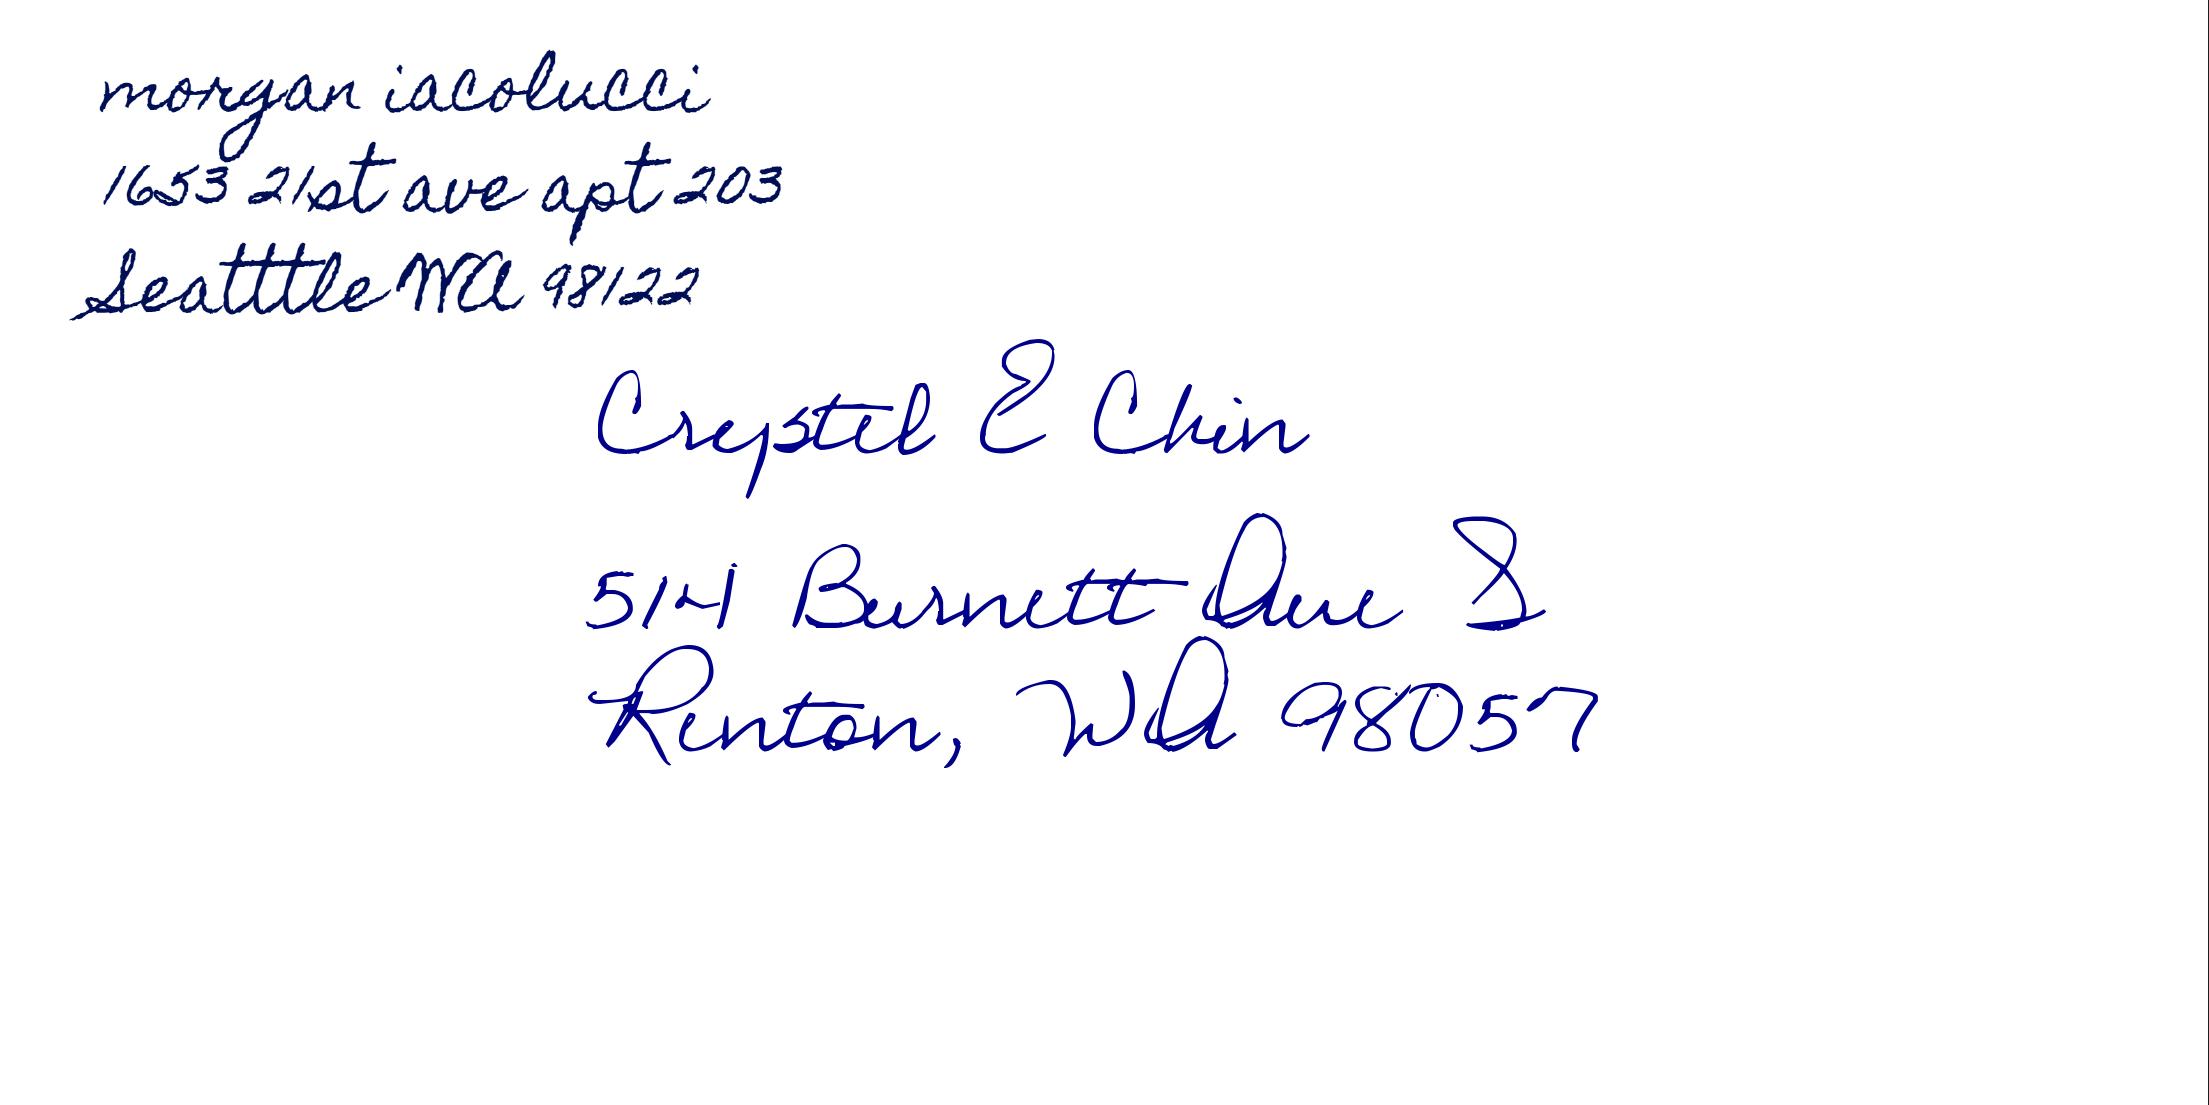 morgan iacolucci
1653 21st ave apt 203
Seatttle WA 98122
Crystel E Chin
514 Burnett Ave S
Renton, WA 98057